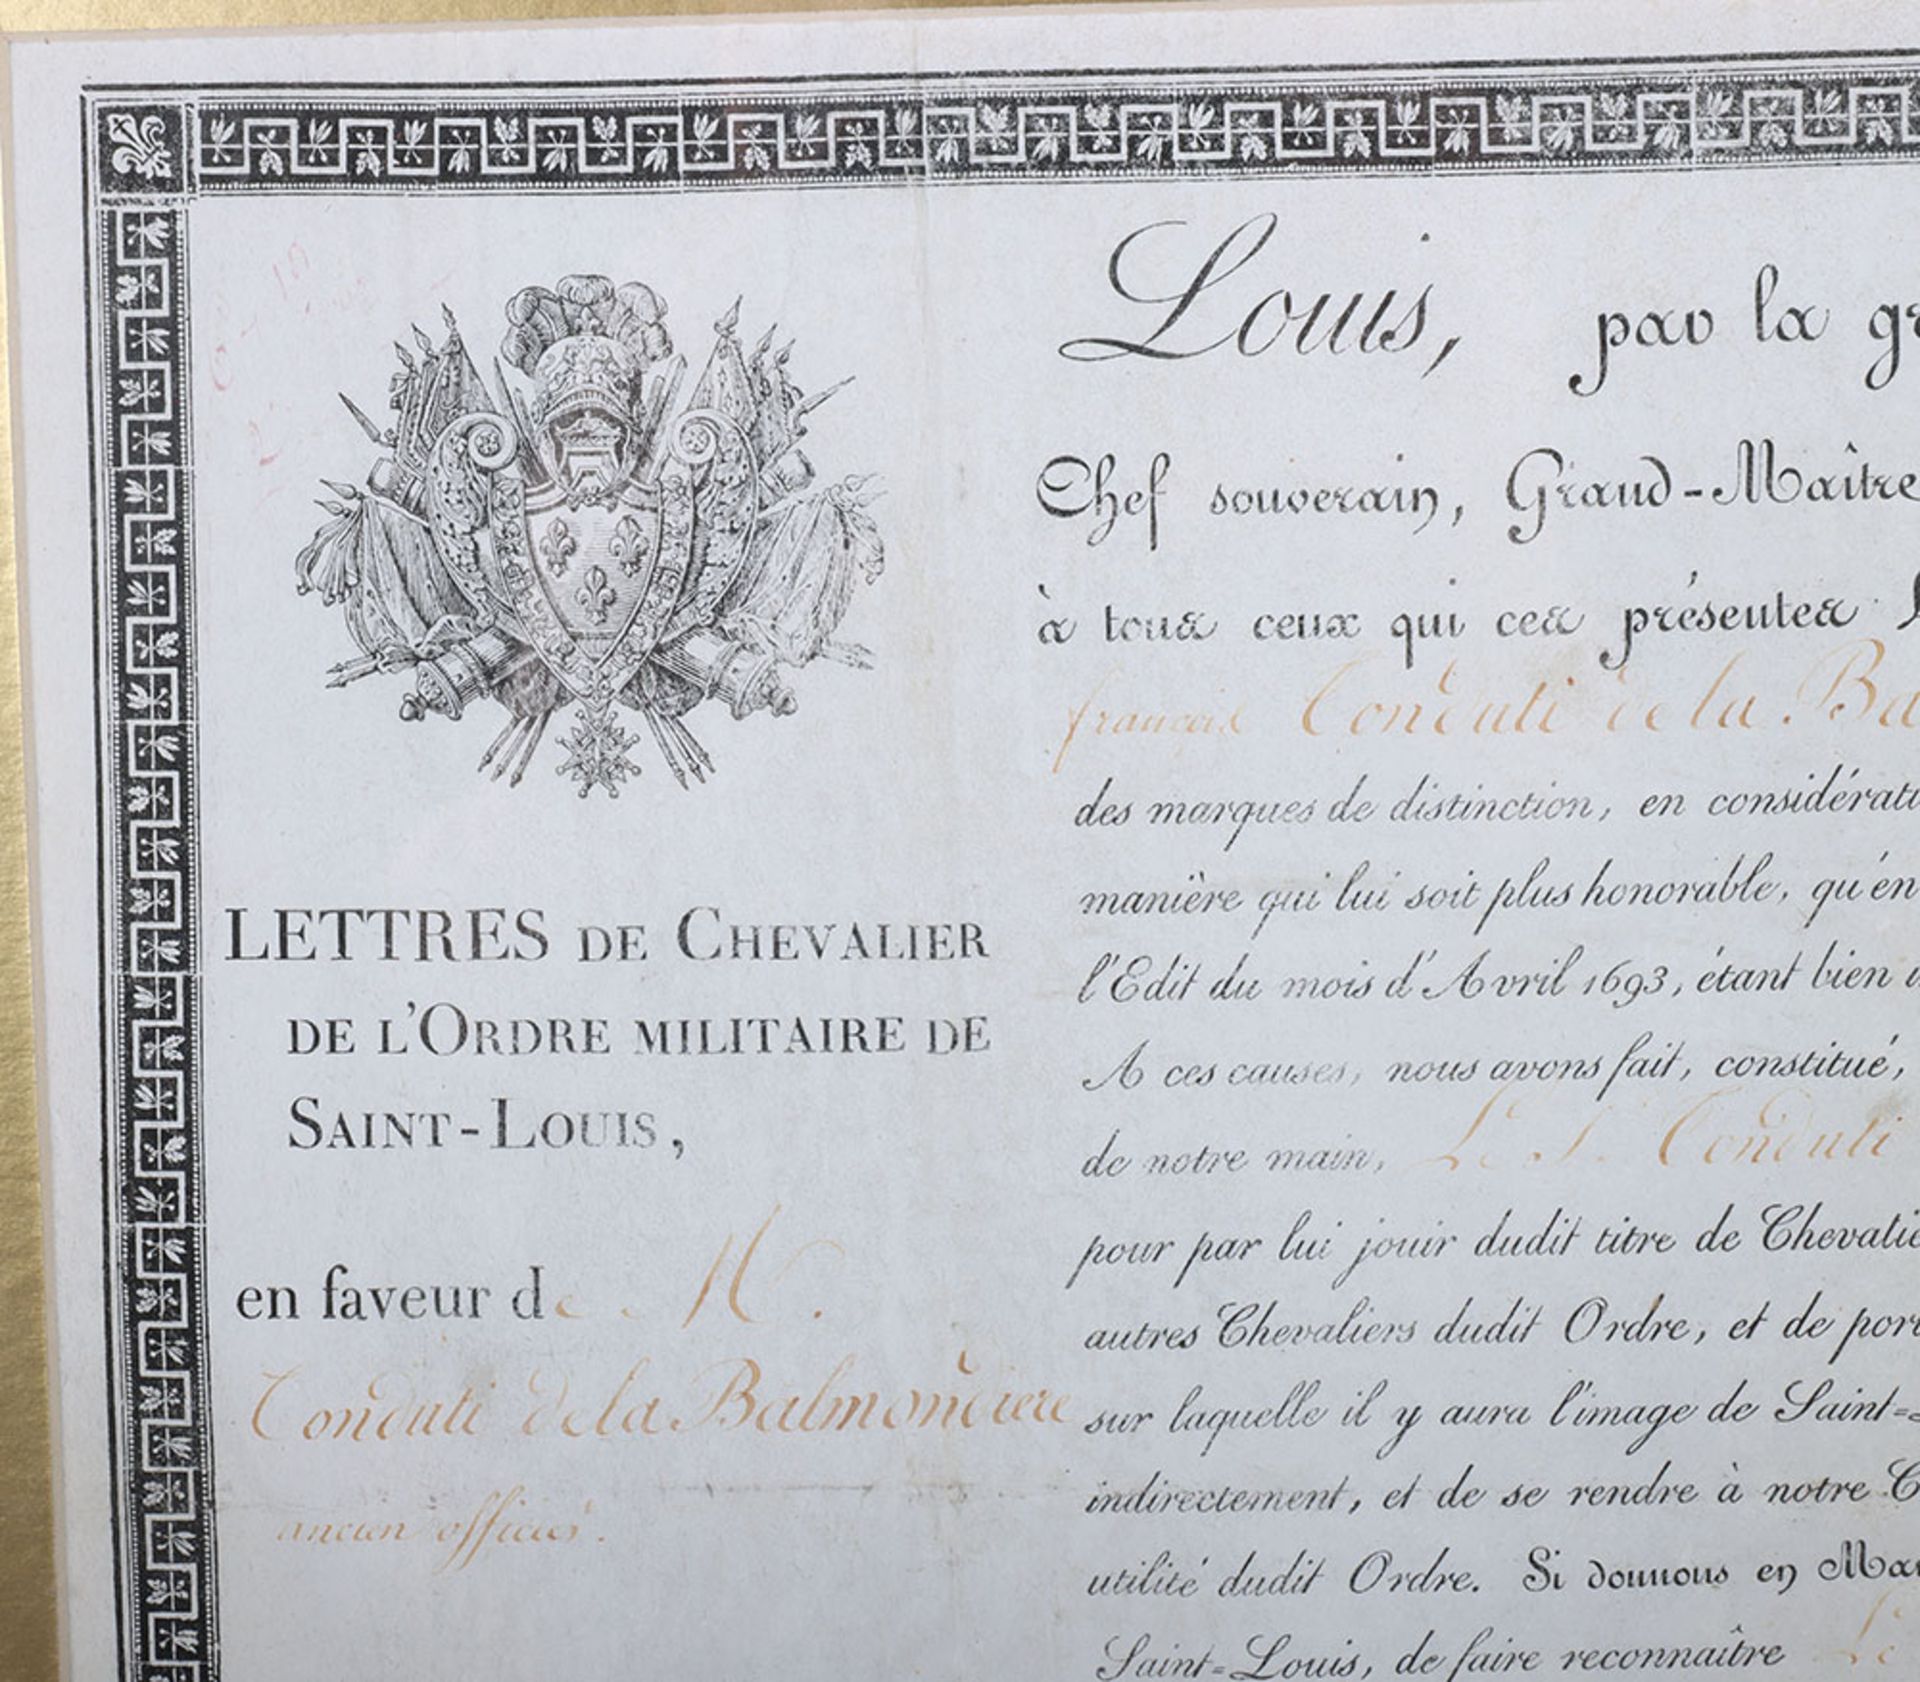 LETTRES DE CHEVALIER
DE L'ORDRE MILITAIRE DE
SAINT-LOUIS,
en faveur de M.
Conduti de la Balmondiere
ancien officier.
Louis, par la
Chef souverain, Grand-Maître
à tous ceux qui ces présentes
françois Conduti de la Ba
des marques de distinction, en considérati
manière qui lui soit plus honorable, qu'en
l'Edit du mois d'Avril 1693, étant bien
A ces causes, nous avons fait, constitué,
de notre main, Le S. Conduti
pour par lui jouir dudit titre de Chevalie
autres Chevaliers dudit Ordre, et de por
sur laquelle il y aura l'image de Saint=
indirectement, et de se rendre à notre
utilité dudit Ordre. Si donnons en Ma
Saint=Louis, de faire reconnaître Le